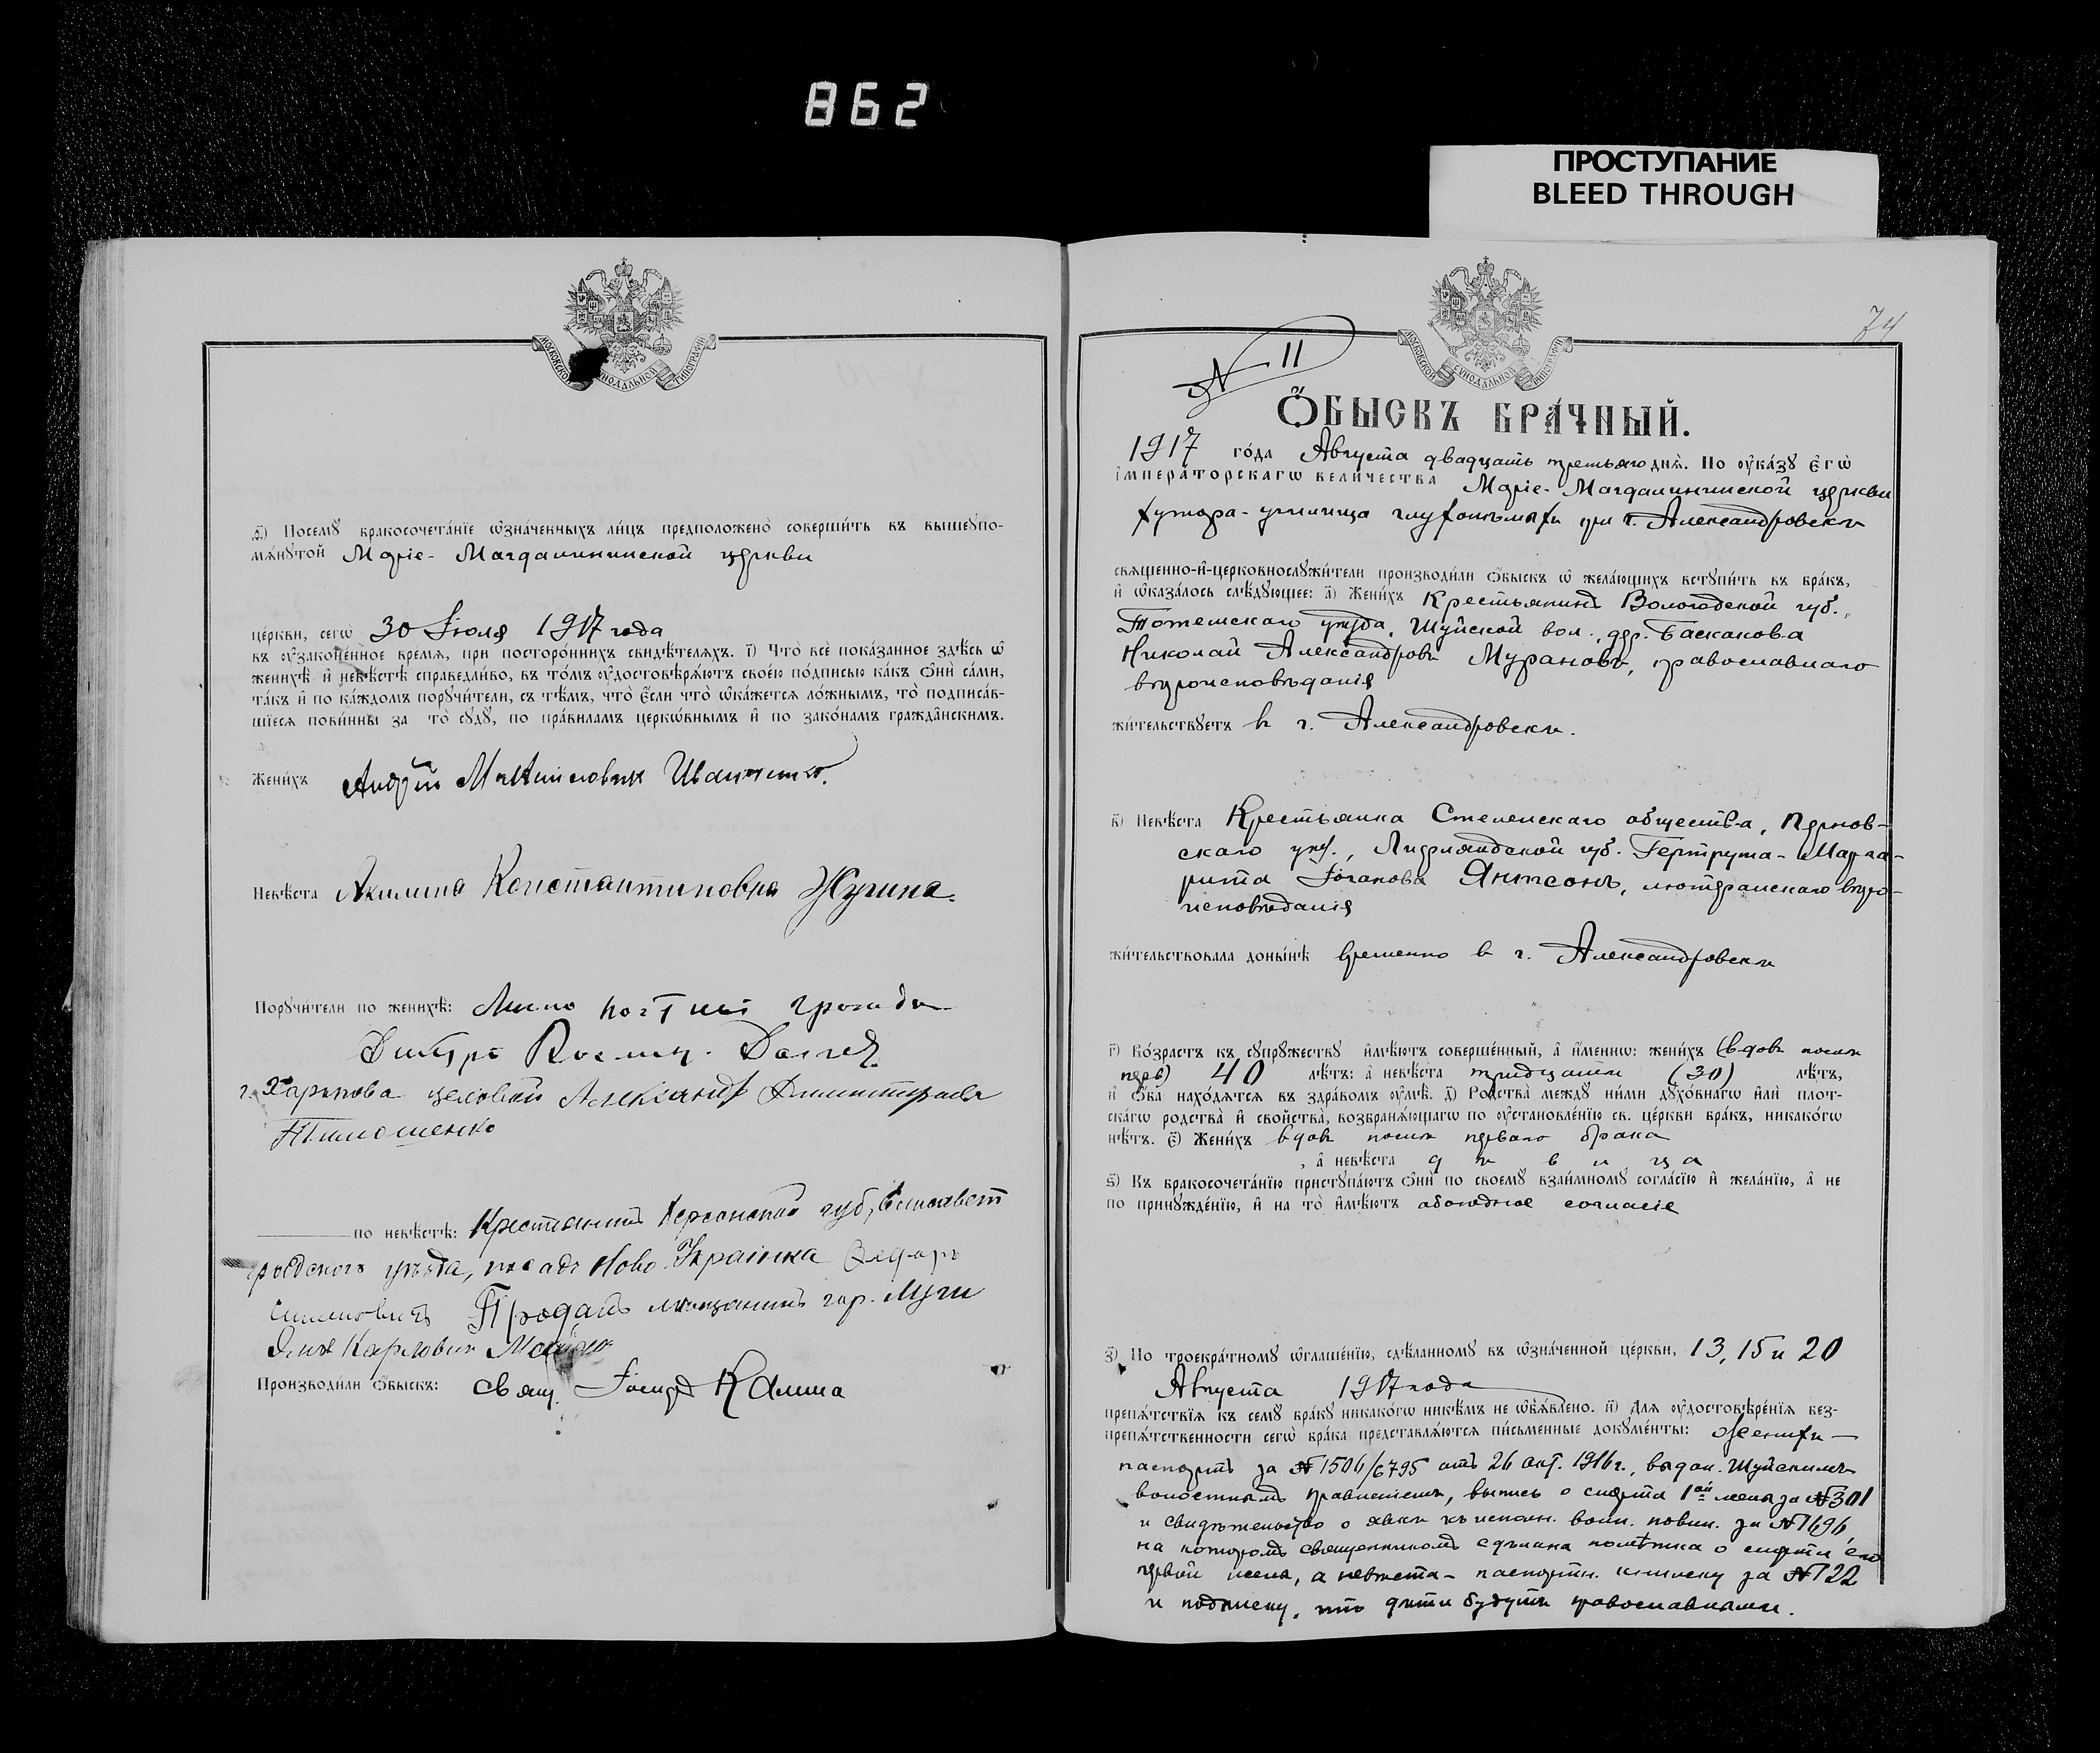 862
ПРОСТУПАНИЕ
BLEED THROUGH
МОСКОВСКОЙ СѴНОДАЛЬНОЙ ТИПОГРАФІИ
ѳ҃) Посемꙋ бракосочета́нїе ѡ҆зна́ченныхъ ли́цъ предположено̀ соверши́ть въ вышеꙋпо-
мѧ́нꙋтой Маріе-Магдалининской церкви
це́ркви, сегѡ̀ 30 Іюля 1917 года
въ ᲂу҆зако́ненное вре́мѧ, при посторо́ннихъ свидѣ́телѧхъ. і҃) Что̀ всѐ пока́занное здѣ́сь ѡ҆
женихѣ̀ и҆ невѣ́стѣ справедли́во, въ то́мъ ᲂу҆достовѣрѧ́ютъ свое́ю по́дписью ка́къ ѻ҆нѝ са́ми,
та́къ и҆ по ка́ждомъ порꙋчи́тели, съ тѣ́мъ, что̀ є҆́сли что̀ ѡ҆ка́жетсѧ ло́жнымъ, то̀ подписа́в-
шїесѧ пови́нны за то̀ сꙋдꙋ̀, по пра́виламъ церкѡ́внымъ и҆ по зако́намъ гражда̑нскимъ.
Жени́хъ Андрій Иваненко.
Невѣ́ста Акилина Константиновна Жугина.
Порꙋчи́тели по женихѣ̀:
г. Харькова цеховой Александр Димитриевъ
Тимошенко
по невѣ́стѣ: Крестьянинъ Херсонской губ, Елисавет
градскаго уѣзда, посада Ново Украінка Федоръ
Семеновичъ мѣщанинъ гор.
Карлович
Производи́ли ѻ҆́быскъ: Свящ. Калина
74
МОСКОВСКОЙ СѴНОДАЛЬНОЙ ТИПОГРАФІИ
№ 11
Ѻ҆́БЫСКЪ БРА́ЧНЫЙ.
1917 го́да Августа двадцать третьяго днѧ̀. По ᲂу҆ка́зꙋ є҆гѡ̀
і҆мпера́торскагѡ вели́чества Маріе-Магдалининской церкви
хутора-училища глухонѣмыхъ при г. Александровскѣ
свѧще́нно-и҆-церковнослꙋжи́тели производи́ли ѻ҆́быскъ ѡ҆ жела́ющихъ встꙋпи́ть въ бра́къ,
и҆ ѡ҆каза́лось слѣ́дꙋющее: а҃) Жени́хъ Крестьянинъ Вологодской губ.,
Тотемскаго уѣзда, Шуйской вол., дер. Басканова
Николай Александровъ Мурановъ, православнаго
вѣроисповѣданія
жи́тельствꙋетъ въ г. Александровскѣ.
в҃) Невѣ́ста Крестьянка общества, Пернов-
скаго уѣз., Лифляндской губ. Гертрута-Марга-
рита Іоганова Янтсонъ, лютеранскаго вѣро-
исповѣданія
жи́тельствовала доны́нѣ временно въ г. Александровскѣ
г҃) Во́зрастъ къ сꙋпрꙋ́жествꙋ и҆мѣ́ютъ соверше́нный, а҆ и҆́меннѡ: жени́хъ (вдовъ послѣ
перв) 40 лѣ́тъ: а҆ невѣ́ста тридцати (30) лѣ́тъ,
и҆ ѻ҆́ба нахо́дѧтсѧ въ здра́вомъ ᲂу҆мѣ̀. д҃) Родства̀ междꙋ̀ ни́ми дꙋхо́внагѡ и҆лѝ плот-
ска́гѡ родства̀ и҆ свойства̀, возбранѧ́ющагѡ по ᲂу҆становле́нїю св. це́ркви бра́къ, никако́гѡ
нѣ́тъ. є҃) Жени́хъ вдовъ послѣ перваго брака
, а҆ невѣ́ста дѣвица
ѕ҃) Къ бракосочета́нїю пристꙋпа́ютъ ѻ҆нѝ по своемꙋ̀ взаи́мномꙋ согла́сїю и҆ жела́нїю, а҆ не
по принꙋжде́нїю, и҆ на то̀ и҆мѣ́ютъ обоюдное согласіе
з҃) По троекра́тномꙋ ѡ҆глаше́нїю, сдѣ́ланномꙋ въ ѡ҆зна́ченной це́ркви, 13, 15 и 20
Августа 1917 года
препѧ́тствїѧ къ семꙋ̀ бра́кꙋ никако́гѡ никѣ́мъ не ѡ҆б̾ѧ́влено. и҃) Длѧ ᲂу҆достовѣре́нїѧ без-
препѧ́тственности сегѡ̀ бра́ка представлѧ́ютсѧ пи́сьменные докꙋме́нты: Женихъ—
паспортъ за № 1506/6795 отъ 26 окт. 1916 г., выдан. Шуйскимъ
волостнымъ правленіемъ, выпись о смерти 1ой жены за № 301
и свидѣтельство о явкѣ къ исполн. воин. повин. за № 1696,
на которомъ священникомъ сдѣлана помѣтка о смерти его
первой жены, а невѣста- паспортн. книжку за № 122
и подписку, что дѣти будутъ православными.